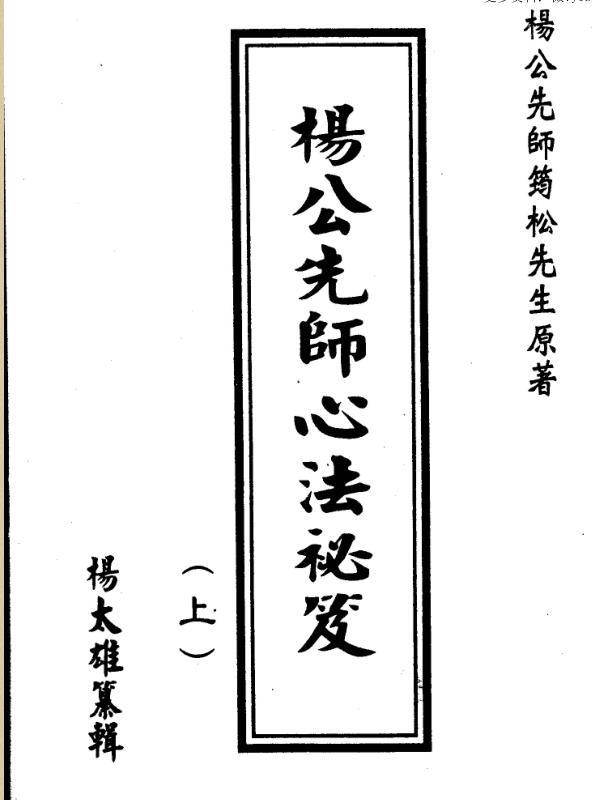 楊公先師筠松先生原著
楊公先師心法祕笈
（上）
楊太雄纂輯